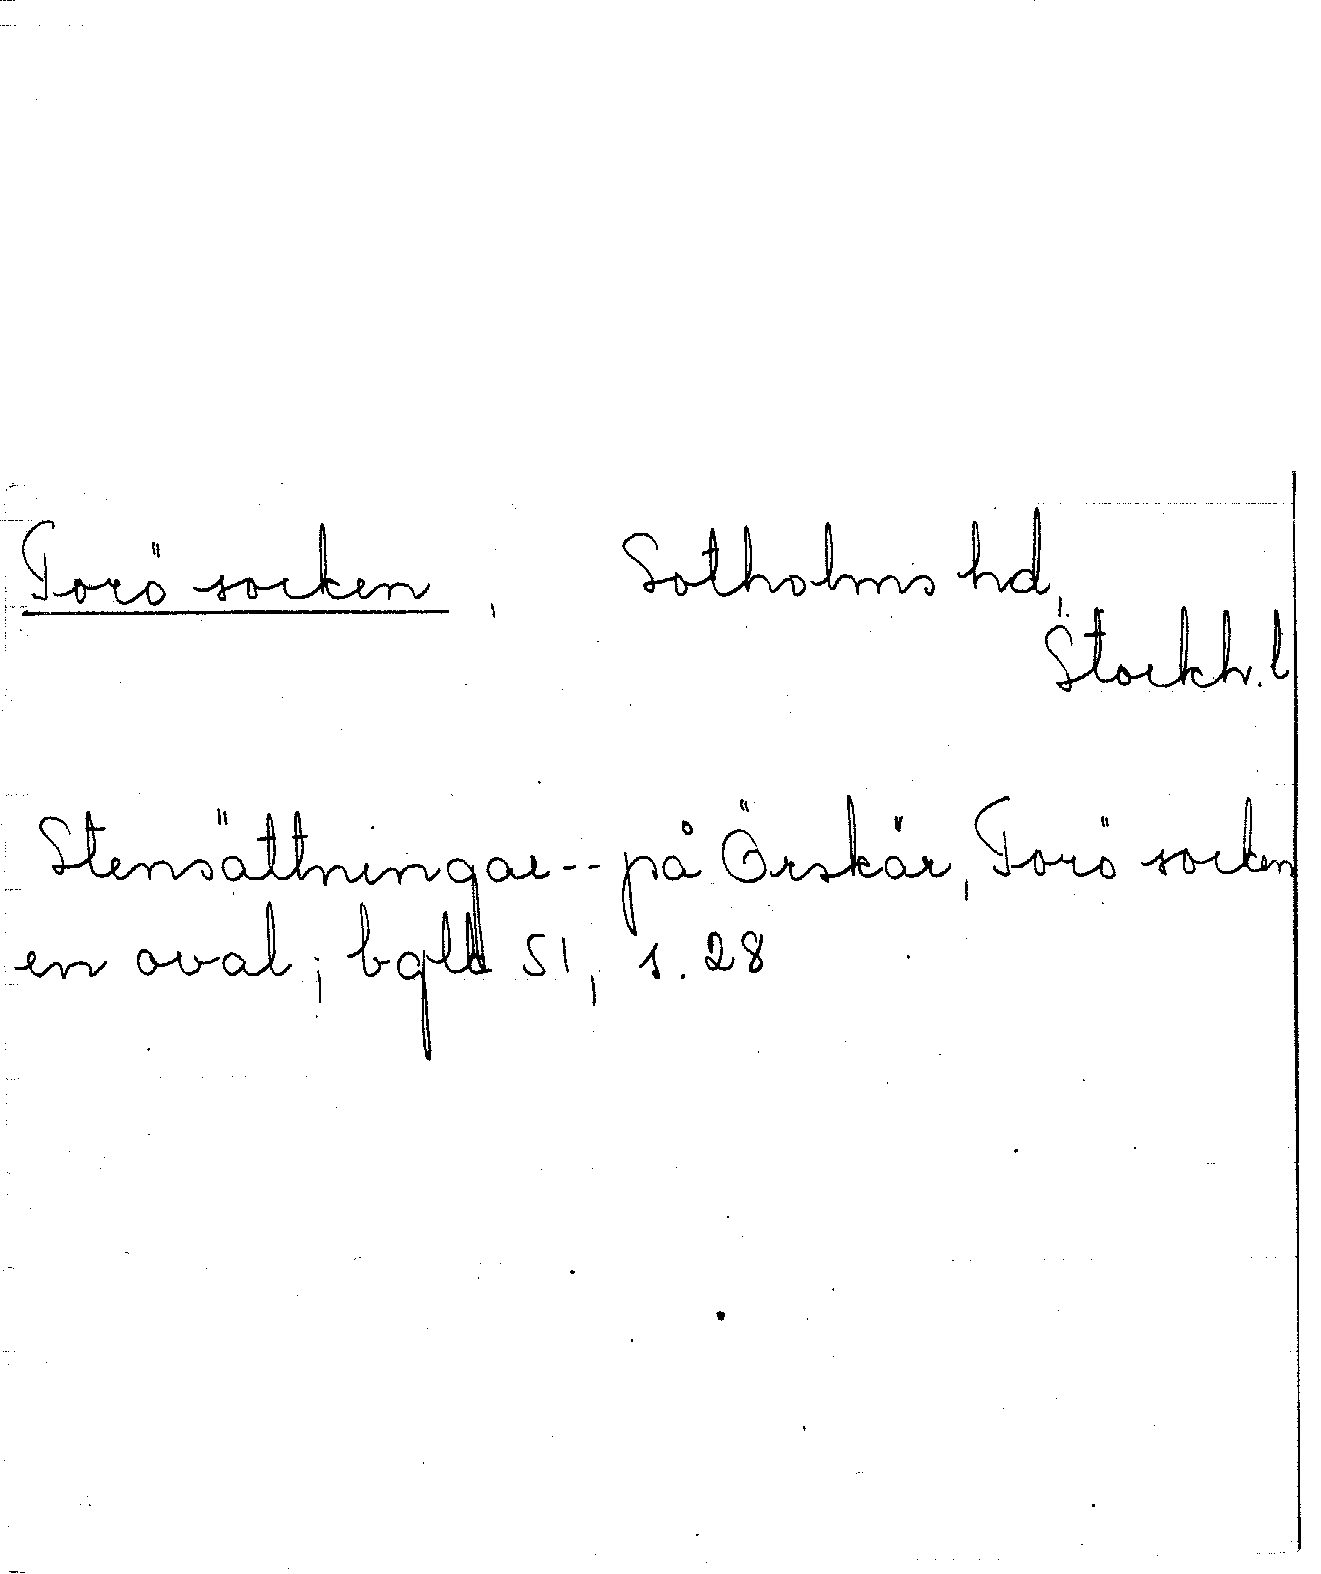 Torö socken, Sotholms hd,
Stockh. l
Stensättningar -- på Örskär, Torö socken
en oval; bgld 51, s. 28